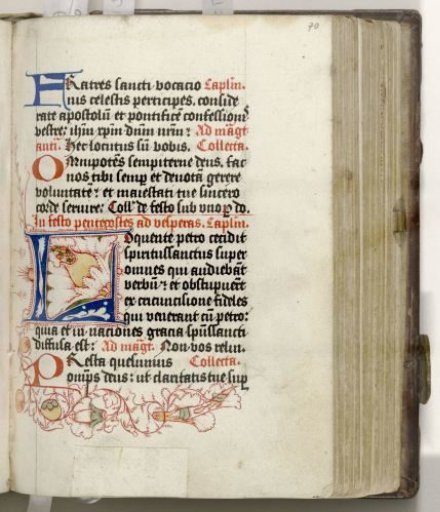 70
Fratres sancti vocacio Caplm̄.
nis celestis perticipes. conside
rate apostolū et pontificē confessionis
vestre: ihm̄ xpm̄ dn̄m nrm̄: Ad māgt
antī. Hec locutus sū vobis. Collecta.
Omnipotēs sempiterne deus. fac
nos tibi semp̱ et deuotā gerere
voluntatē: et maiestati tue sincero
corde seruire: Coll' de festo sub vno p̱ do.
In festo pentecostes ad vesperas. Caplm̄.
Loquente petro cecidit
spiritussanctus super
omnes qui audiebāt
verbū: et obstupuerūt
ex circūcisione fideles
qui venerant cū petro:
quia et in naciones gracia sp̄ussancti
diffusa est: Ad māgt. Non vos relin.
Presta quesumus Collecta.
omp̄s deus: ut claritatis tue sup̱